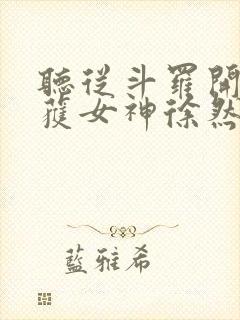 聽從斗羅開
獲女神徐然
藍雅希